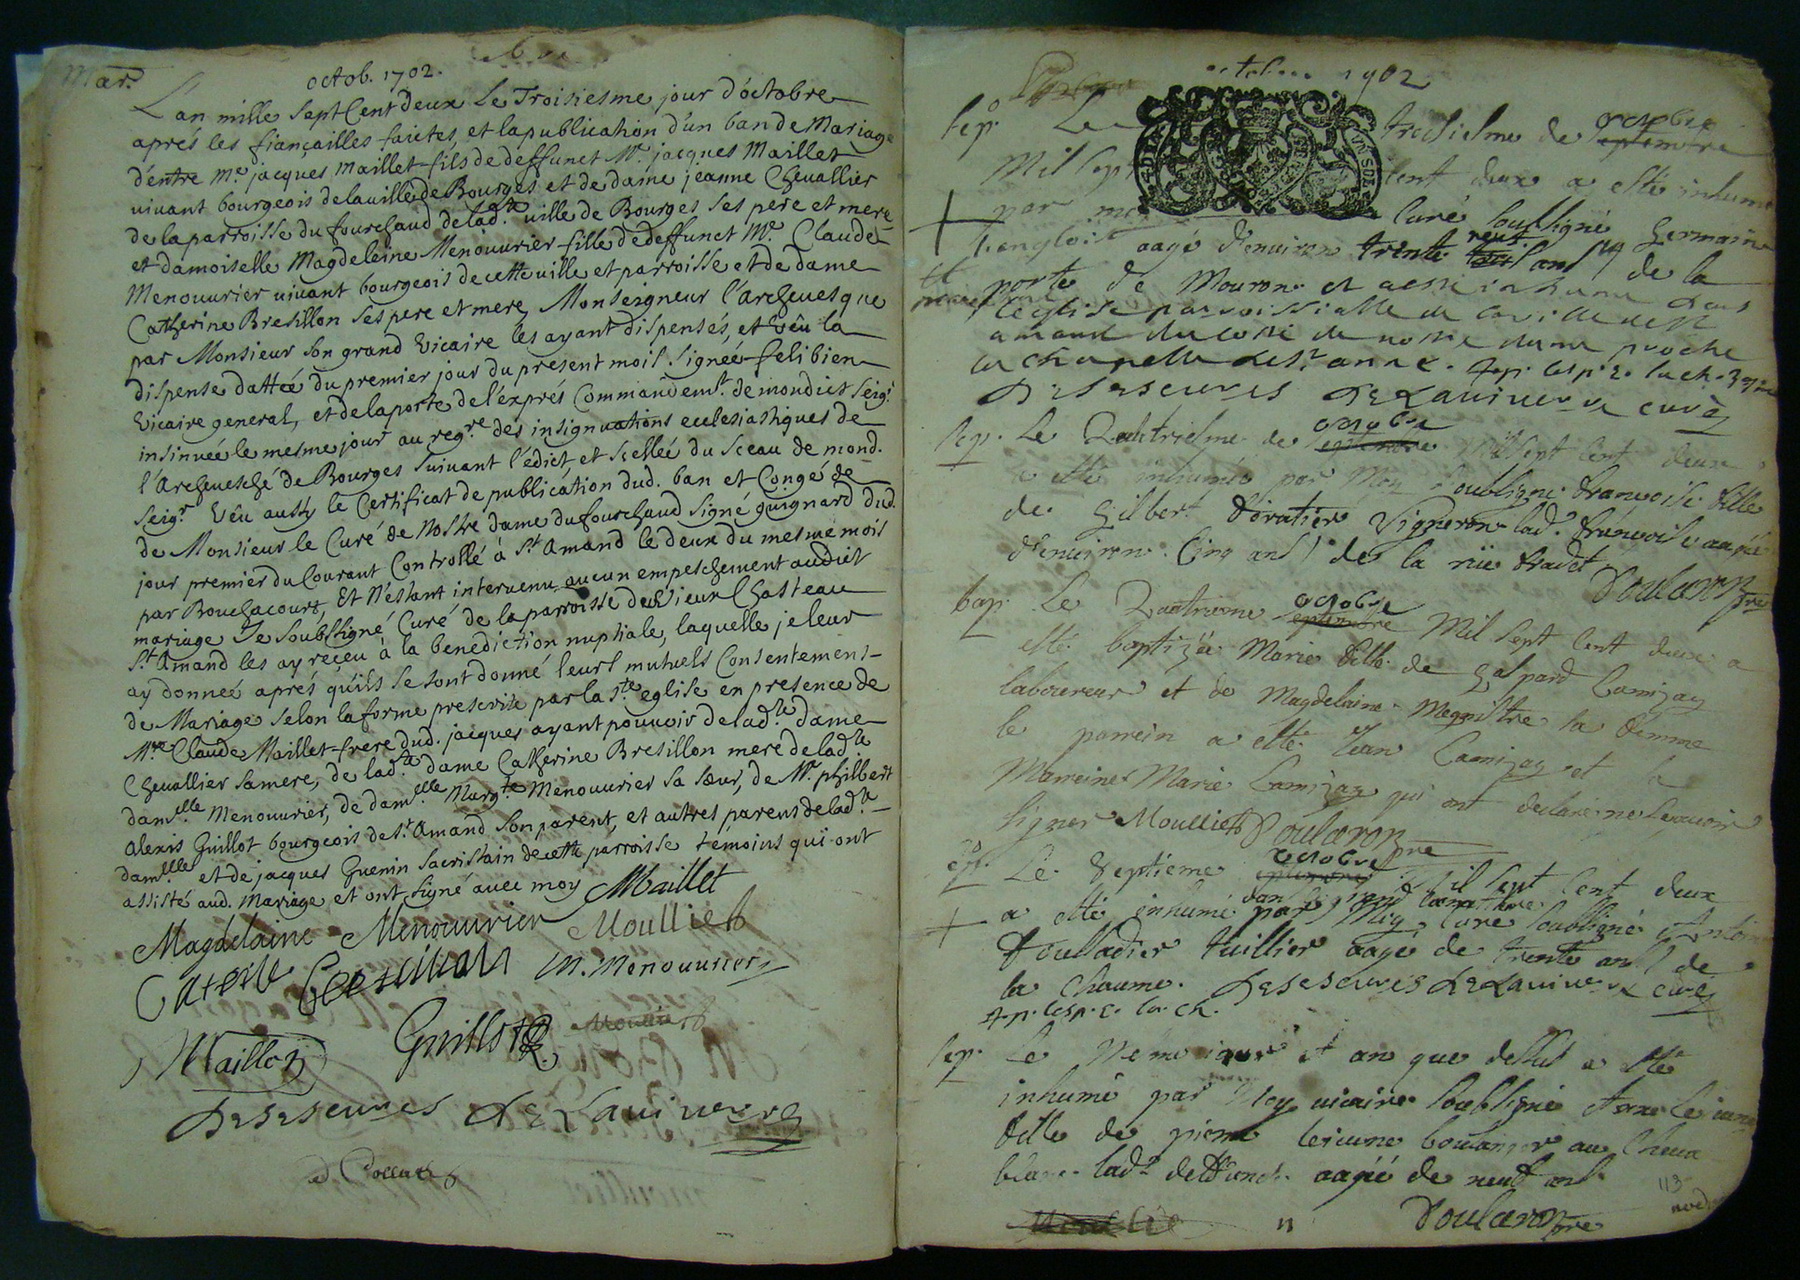 Mar.
octob. 1702.
L'an mille sept Cent deux Le Troisiesme jour d'octobre
aprés les fiançailles faictes, et la publication d'un ban de Mariage
d'entre Me. jacques Maillet fils de deffunct Mr. jacques Maillet
vivant bourgeois de la ville de Bourges et de dame jeanne Chevallier
de la parroisse du fourchaud de lad.te ville de Bourges ses pere et mere
et damoiselle Magdeleine Menouvrier fille de deffunct Mr. Claude
Menouvrier vivant bourgeois de cette ville et parroisse et de dame
Catherine Bresillon ses pere et mere, Monseigneur l'Archevesque
par Monsieur son grand Vicaire les ayant dispensés, et vêu la
dispense dattée du premier jour du present mois. Signée felibien
Vicaire general, et de la porte de l'exprés Commandemt. de mondict Seigr.
insinuée le mesme jour au regre. des insignuations ecclesiastiques de
l'Archevesché de Bourges suivant l'édict, et scellée du sceau de mond.
seigr. Vêu aussy le Certificat de publication dud. ban et Congé de
de Monsieur le Curé de Nostre dame du fourchaud signé guignard dud.
jour premier du Courant Controllé à St. Amand le deux du mesme mois
par Bouchacourt, Et N'estant intervenu aucun empeschement audict
mariage Je Soubsigné Curé de la parroisse du vieux Chasteau
St. Amand les ay reçeu à la benediction nuptiale, laquelle je leur
ay donneé aprés qu'ils se sont donné leurs mutuels Consentemens
de Mariage selon la forme prescrite par la Ste. eglise en presence de
Mre. Claude Maillet frere dud. jacques ayant pouvoir de lad.te dame
Chevallier sa mere, de lad.te dame Catherine Bresillon mere de lad.te
damlle. Menouvrier, de damelle. Margte. Menouvrier sa sœur, de Mr. philbert
Alexis Guillot bourgeois de St. Amand son parent, et autres parens de lad.te
damlle. et de jacques Guenin sacristain de cette parroisse témoins qui ont
assisté aud. Mariage et ont signé avec moy Maillet
Magdelaine Menouvrier Moulliet
M. menouvrier
Maillet Guillot
Deseseures De Lauiuere

octobre 1702
sep. Le troisiesme de octobre
Mil sept Cent deux a esté inhumé
par moy Curé soubsigné Germain
aagé d'environ trente neuf ans de la
porte de Mouron et a esté inhumé dans
l'eglise parroissialle de la ville de St
amand du costé de nostre dame proche
la chapelle de Ste anne.
Deseseures De Lauiuere curé
sep. Le Quatriesme de octobre Mil sept cent deux
a esté inhumée par Moy soubsigné francoise fille
de Gilbert vigneron lad. francoise aagée
d'environ Cinq ans de la rüe
Doularon pre
bap. Le Quatriesme octobre Mil sept Cent deux a
esté baptizée Marie fille de Gaspard Camizay
laboureur et de Magdelaine sa femme
le parrein a esté Jean Camizay et la
Marreine Marie Camizay qui ont declaré ne scavoir
signer Moulliet Doularon pre
Le Septieme octobre Mil sept Cent deux
a esté inhumé dans le grand cimetiere par Moy Curé soubsigné
tuillier aagé de trente ans de
la Chaume. Deseseures De Lauiuere curé
sep. Le Meme jour et an que dessus a esté
inhumé par Moy vicaire soubsigné Anne Lejeune
fille de pierre lejeune boulanger au Cheval
blanc lad. deffuncte aagée de neuf ans
Doularon pre